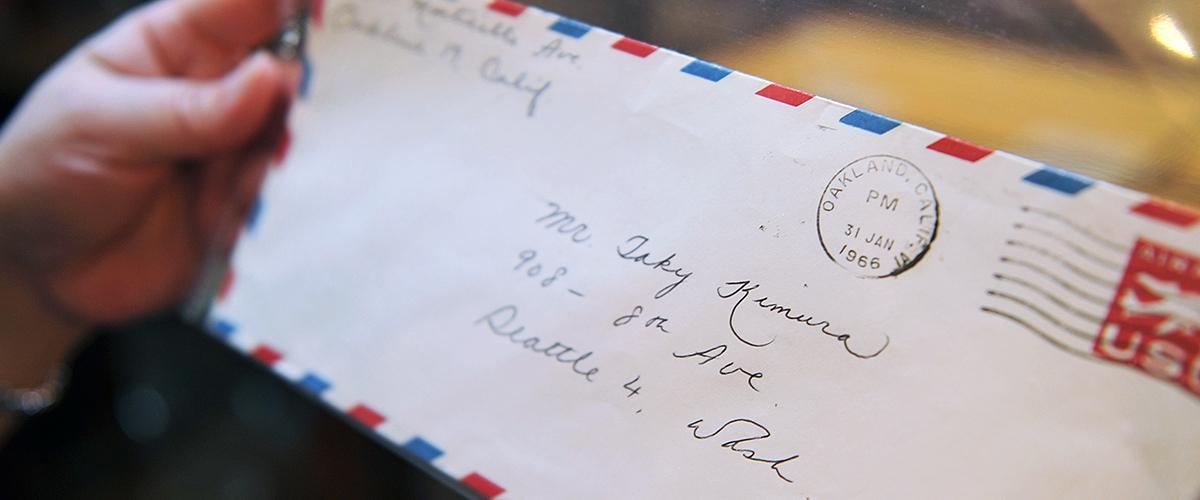 Ave.
Oakland 19 Calif
OAKLAND, CALIF.
PM
31 JAN
1966
AIR
US
Mr. Taky Kimura
908 - 8th Ave.
Seattle 4, Wash.